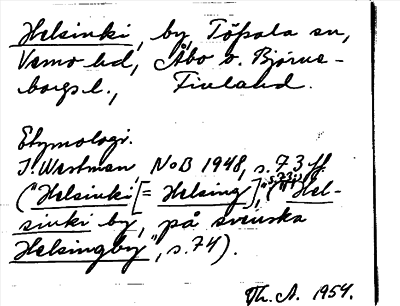 Helsinki, by Töfsala sn,
Vemo hd, Åbo o. Björne-
borgs l., Finland.
Etymologi.
I. Westman, NoB 1948, s. 73 ff.
("Helsinki [= Helsing]", s. 73; "Hel-
sinki by, på svenska
Helsingby", s. 74).
Th. A. 1954.